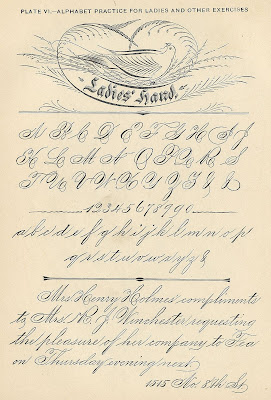 PLATE VI.—ALPHABET PRACTICE FOR LADIES AND OTHER EXERCISES
Ladies' Hand.
A B C D E F G H I J
K L M N O P Q R S
T U V W X Y Z
1234567890
a b c d e f g h i j k l m n o p
q r s t u v w x y z &
Mrs Henry Holmes compliments
to Mrs R. J. Winchester requesting
the pleasure of her company to Tea
on Thursday evening next.
1515 No. 8th St